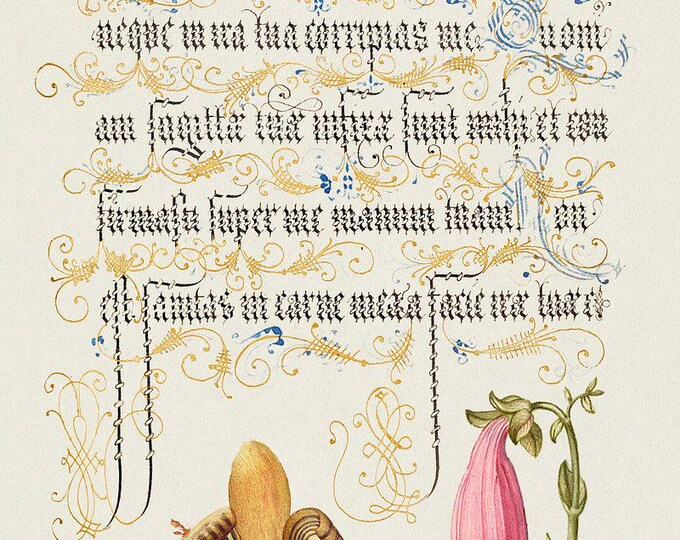 neque in ira tua corripias me. Quoni
am sagittæ tuæ infixæ sunt mihi, et con
firmasti super me manum tuam. Non
est sanitas in carne mea a facie iræ tuæ: